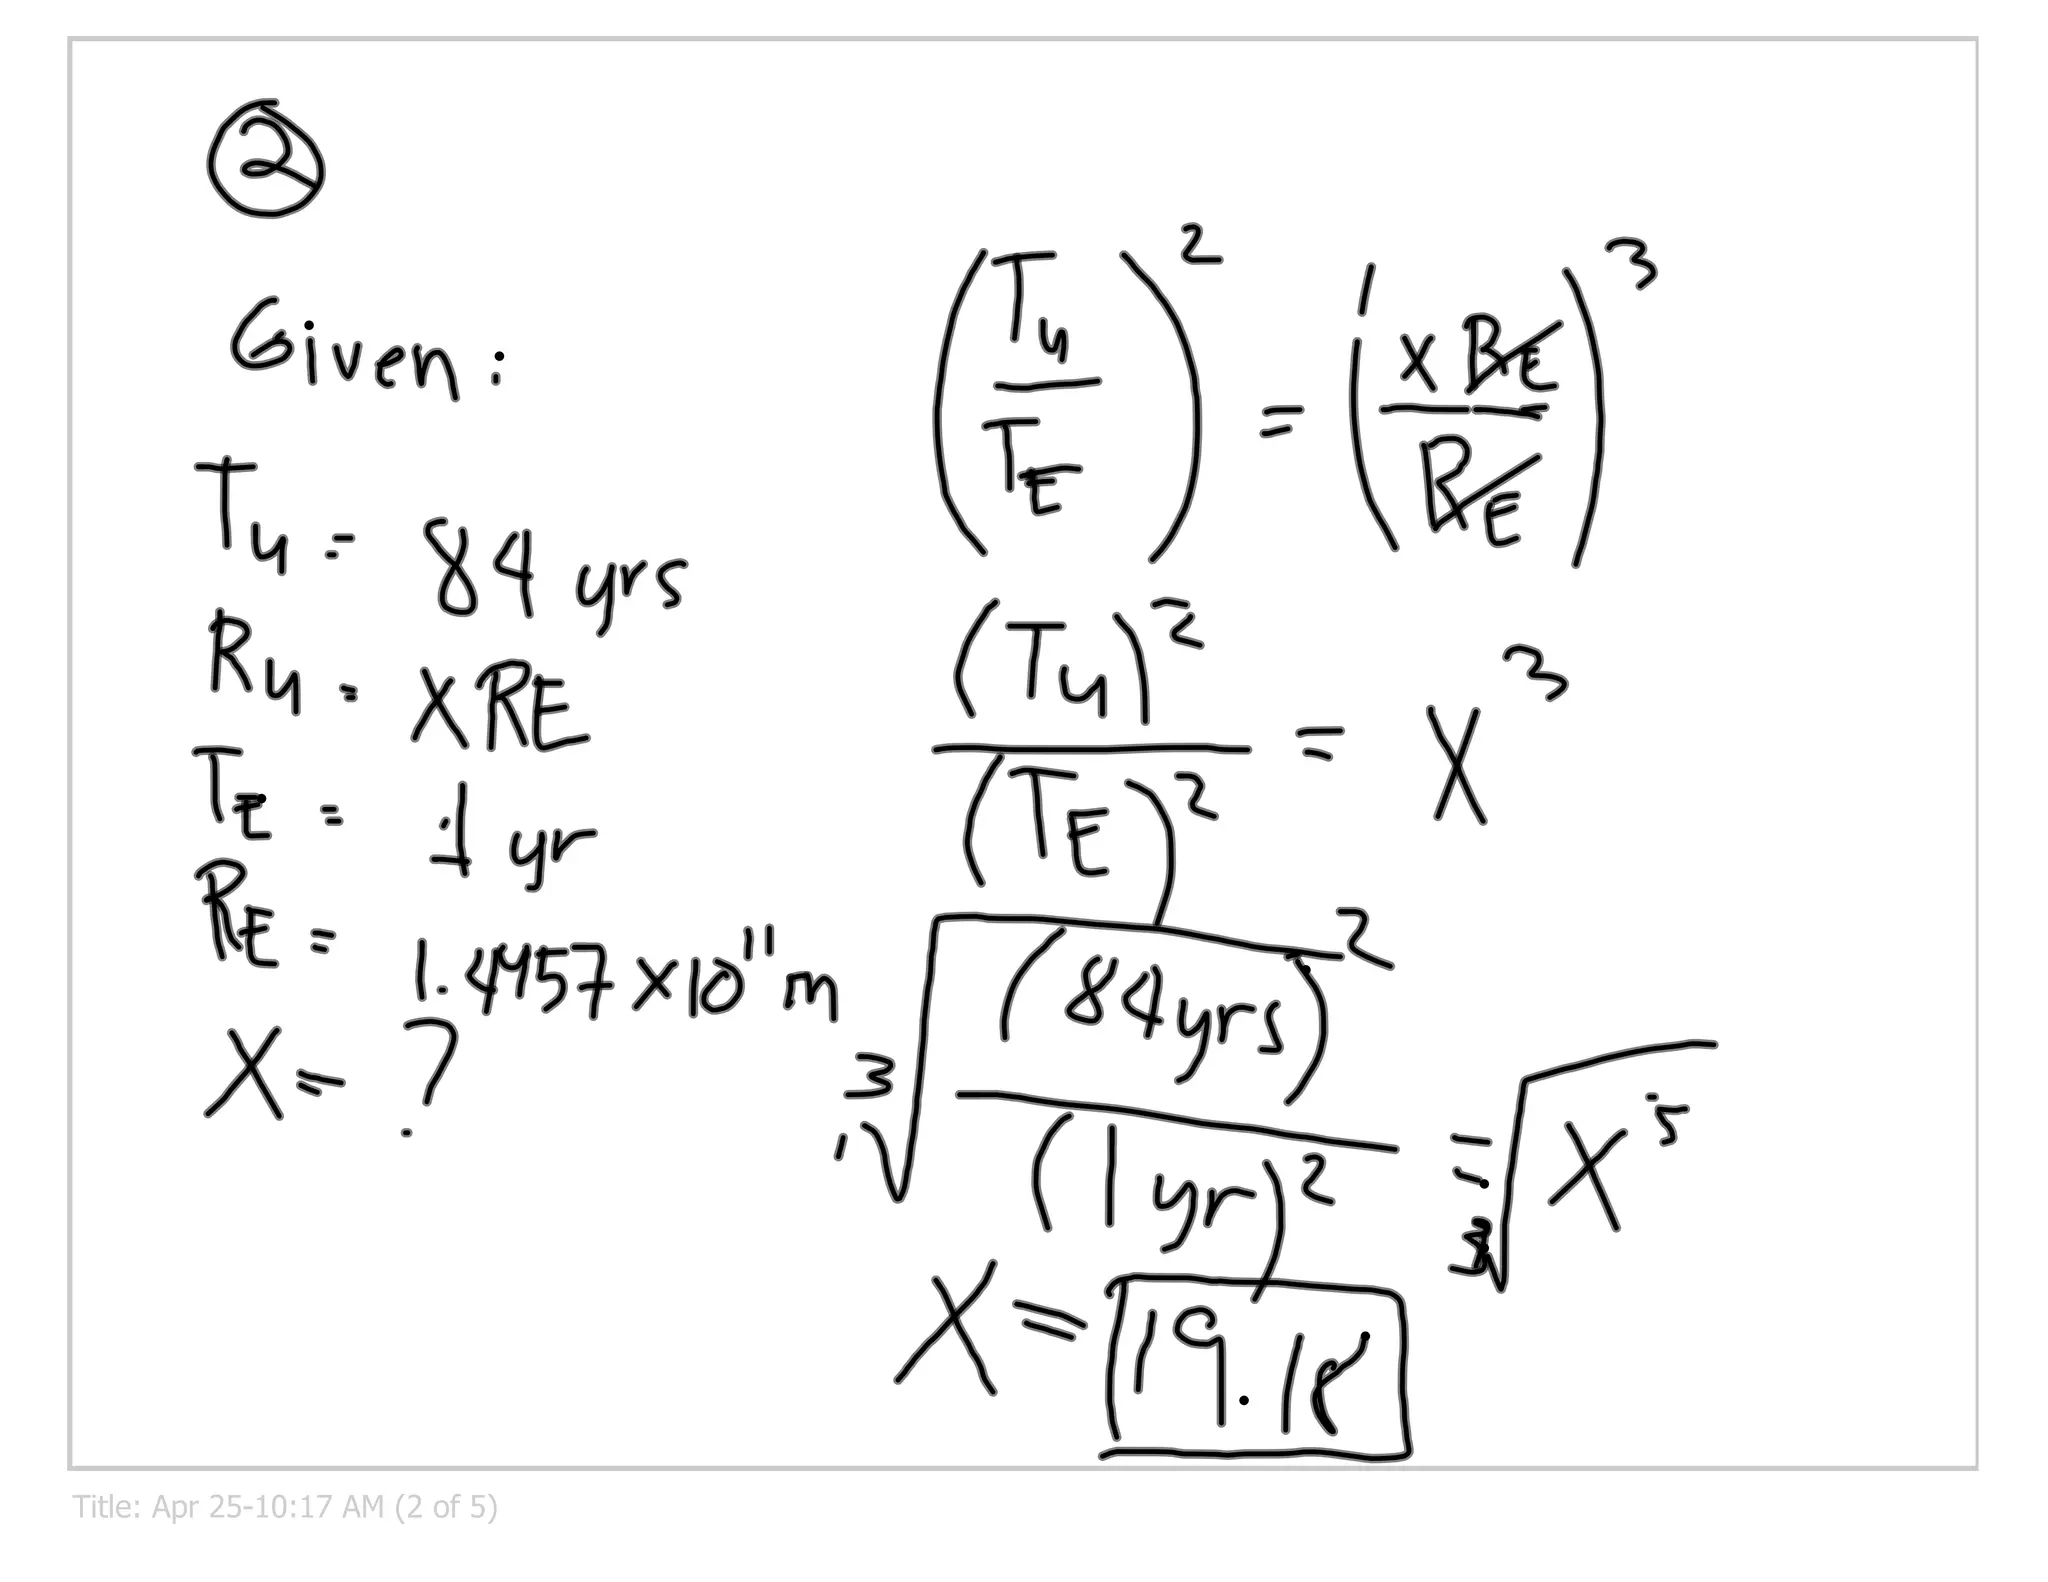 2
Given:
Tu = 84 yrs
Ru = XRE
TE = 1 yr
RE = 1.4957 x10^11 m
X = ?
(Tu/TE)^2 = (xRE/RE)^3
(Tu)^2/(TE)^2 = X^3
∛((84yrs)^2/(1 yr)^2) = ∛X^3
X = 19.18
Title: Apr 25-10:17 AM (2 of 5)